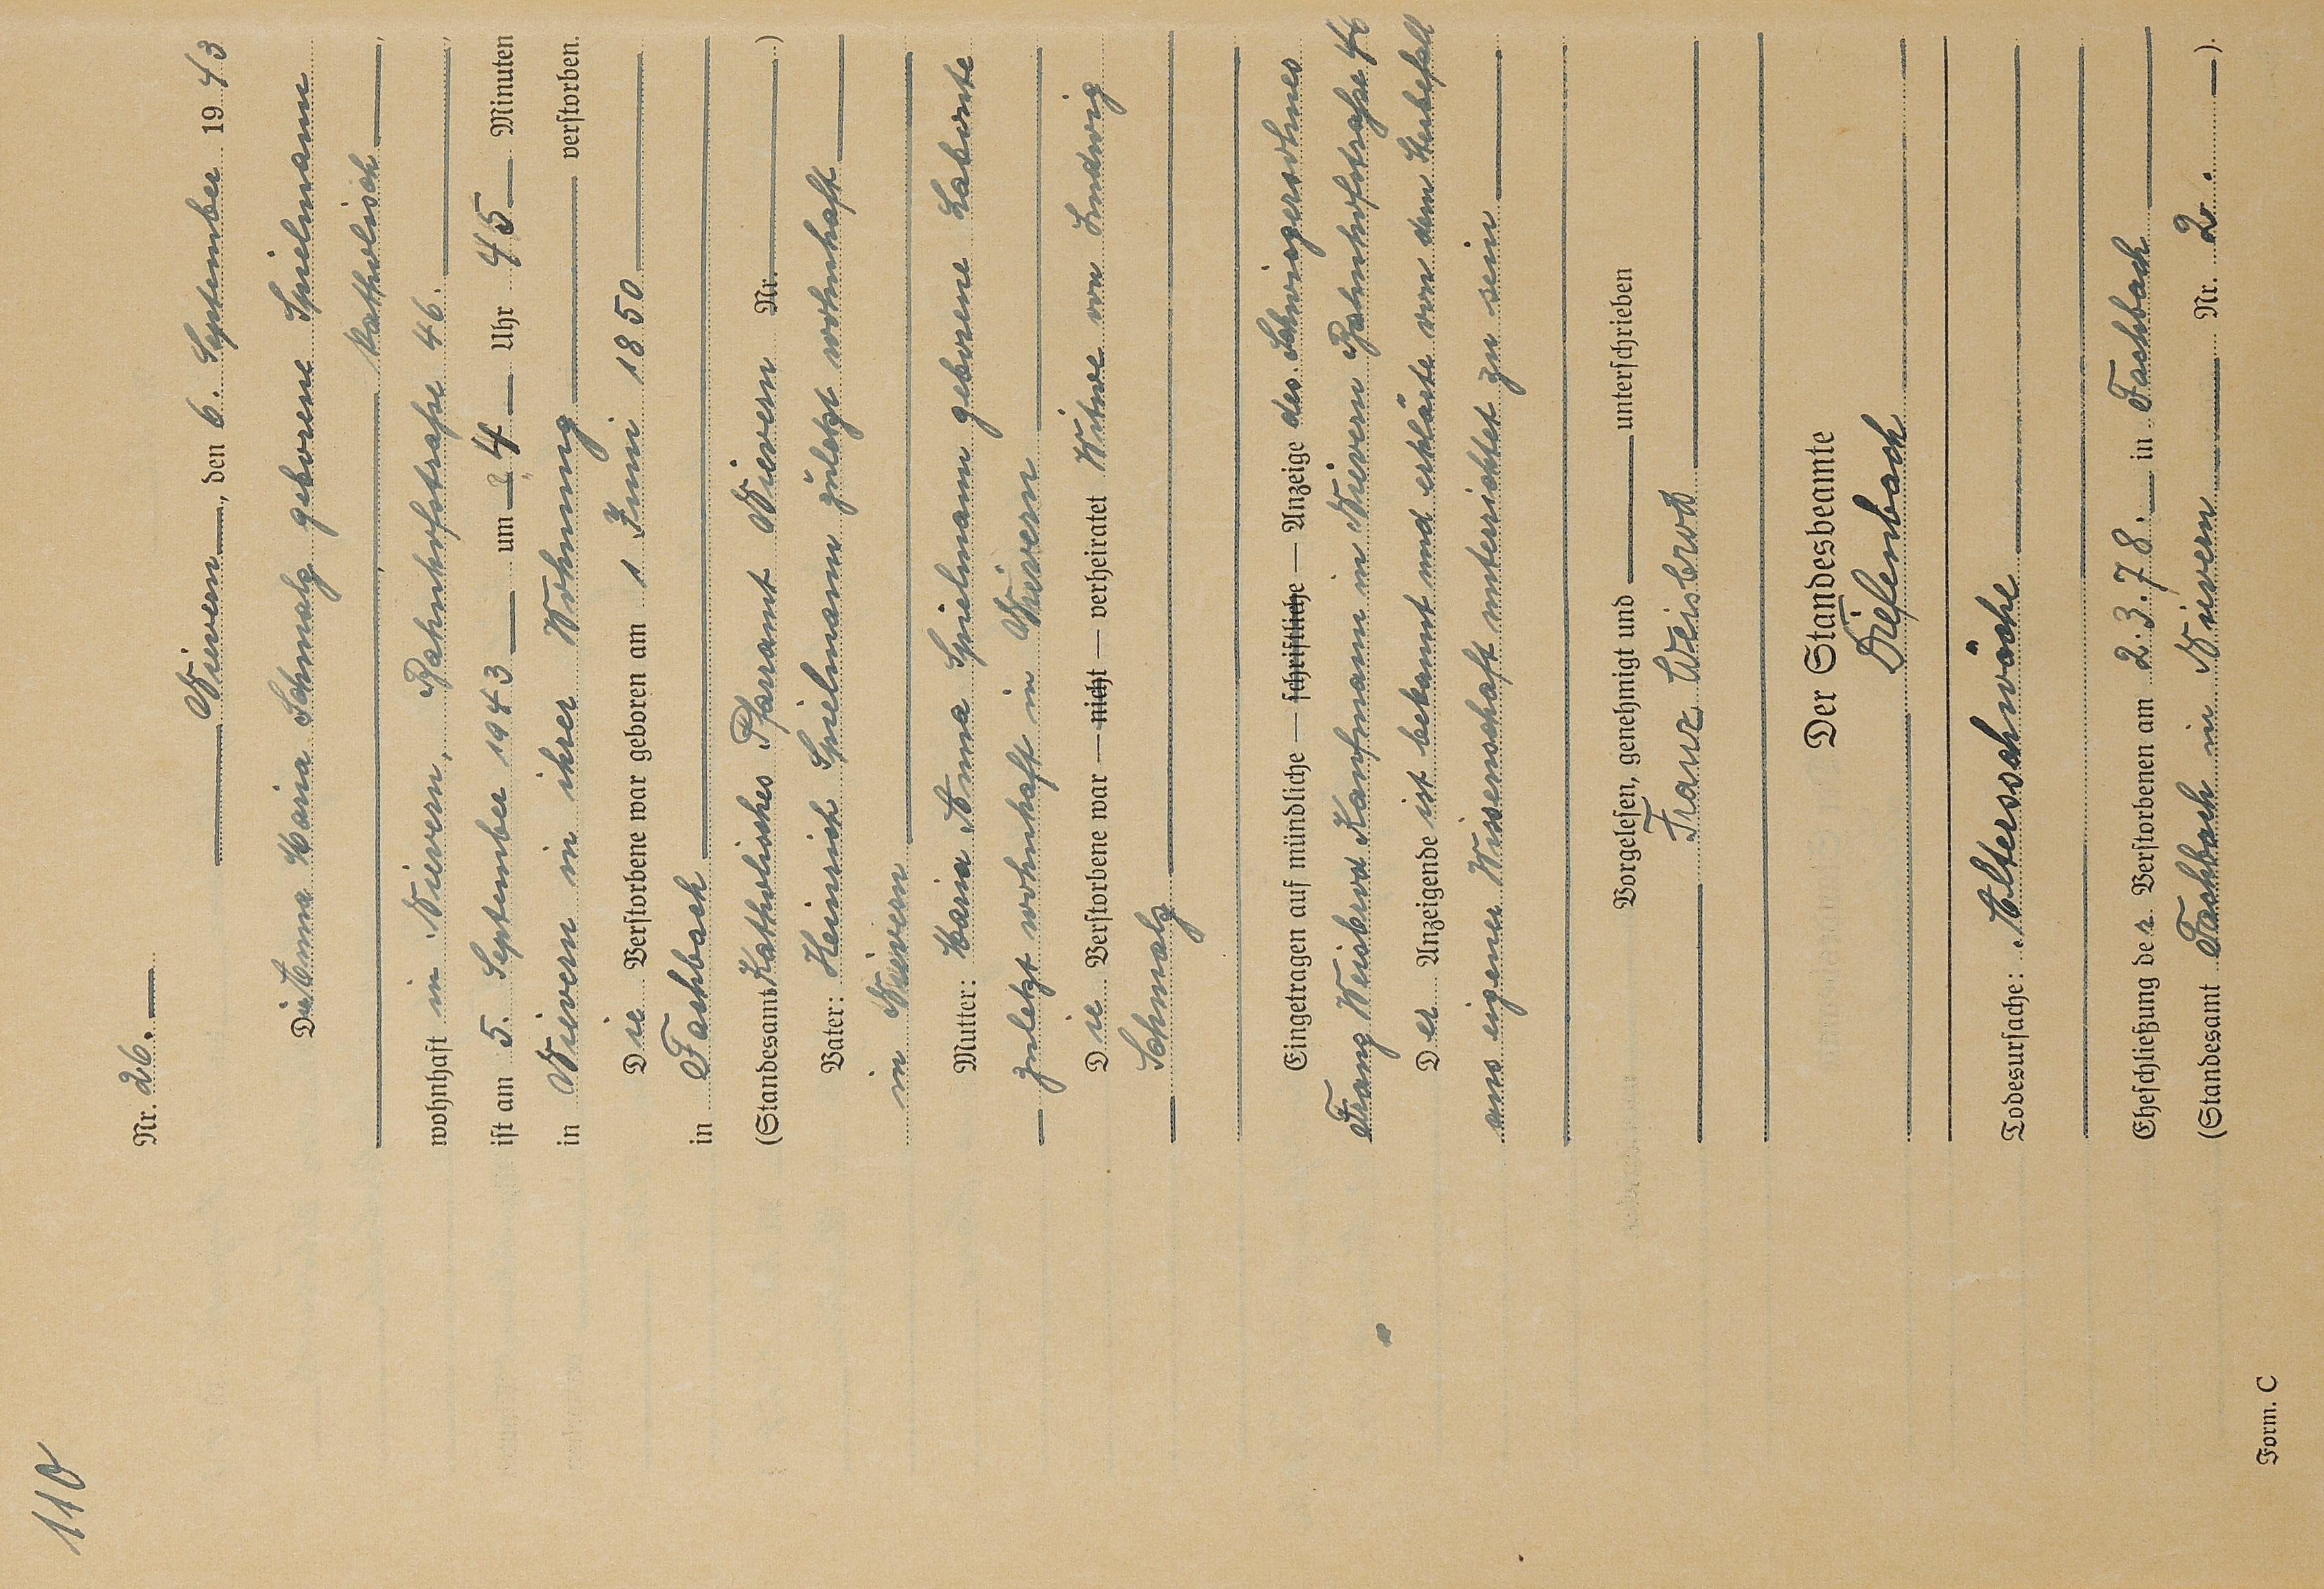 110
Nr. 26.
Nievern, den 6. September 1943
Die Anna Maria Schmalz geborene Spielmann
katholisch,
wohnhaft in Nievern, Bahnhofstraße 46.,
ist am 5. September 1943 um 4 Uhr 45 Minuten
in Nievern in ihrer Wohnung verstorben.
Die Verstorbene war geboren am 1 Juni 1850
in Fachbach
(Standesamt Katholisches Pfarramt Nievern Nr. )
Vater: Heinrich Spielmann zuletzt wohnhaft
in Nievern
Mutter: Maria Anna Spielmann geborene Labonte
zuletzt wohnhaft in Nievern
Die Verstorbene war — nicht — verheiratet Witwe von Ludwig
Schmalz
Eingetragen auf mündliche — schriftliche — Anzeige des Schwiegersohnes
Franz Weisbrod Kaufmann in Nievern Bahnhofstraße 46
Der Anzeigende ist bekannt und erklärte von dem Sterbefall
aus eigener Wissenschaft unterrichtet zu sein
Vorgelesen, genehmigt und unterschrieben
Franz Weisbrod
Der Standesbeamte
Diefenbach
Todesursache: Altersschwäche
Eheschließung der Verstorbenen am 2.3.78. in Fachbach
(Standesamt Fachbach in Nievern Nr. 2. ).
Form. C